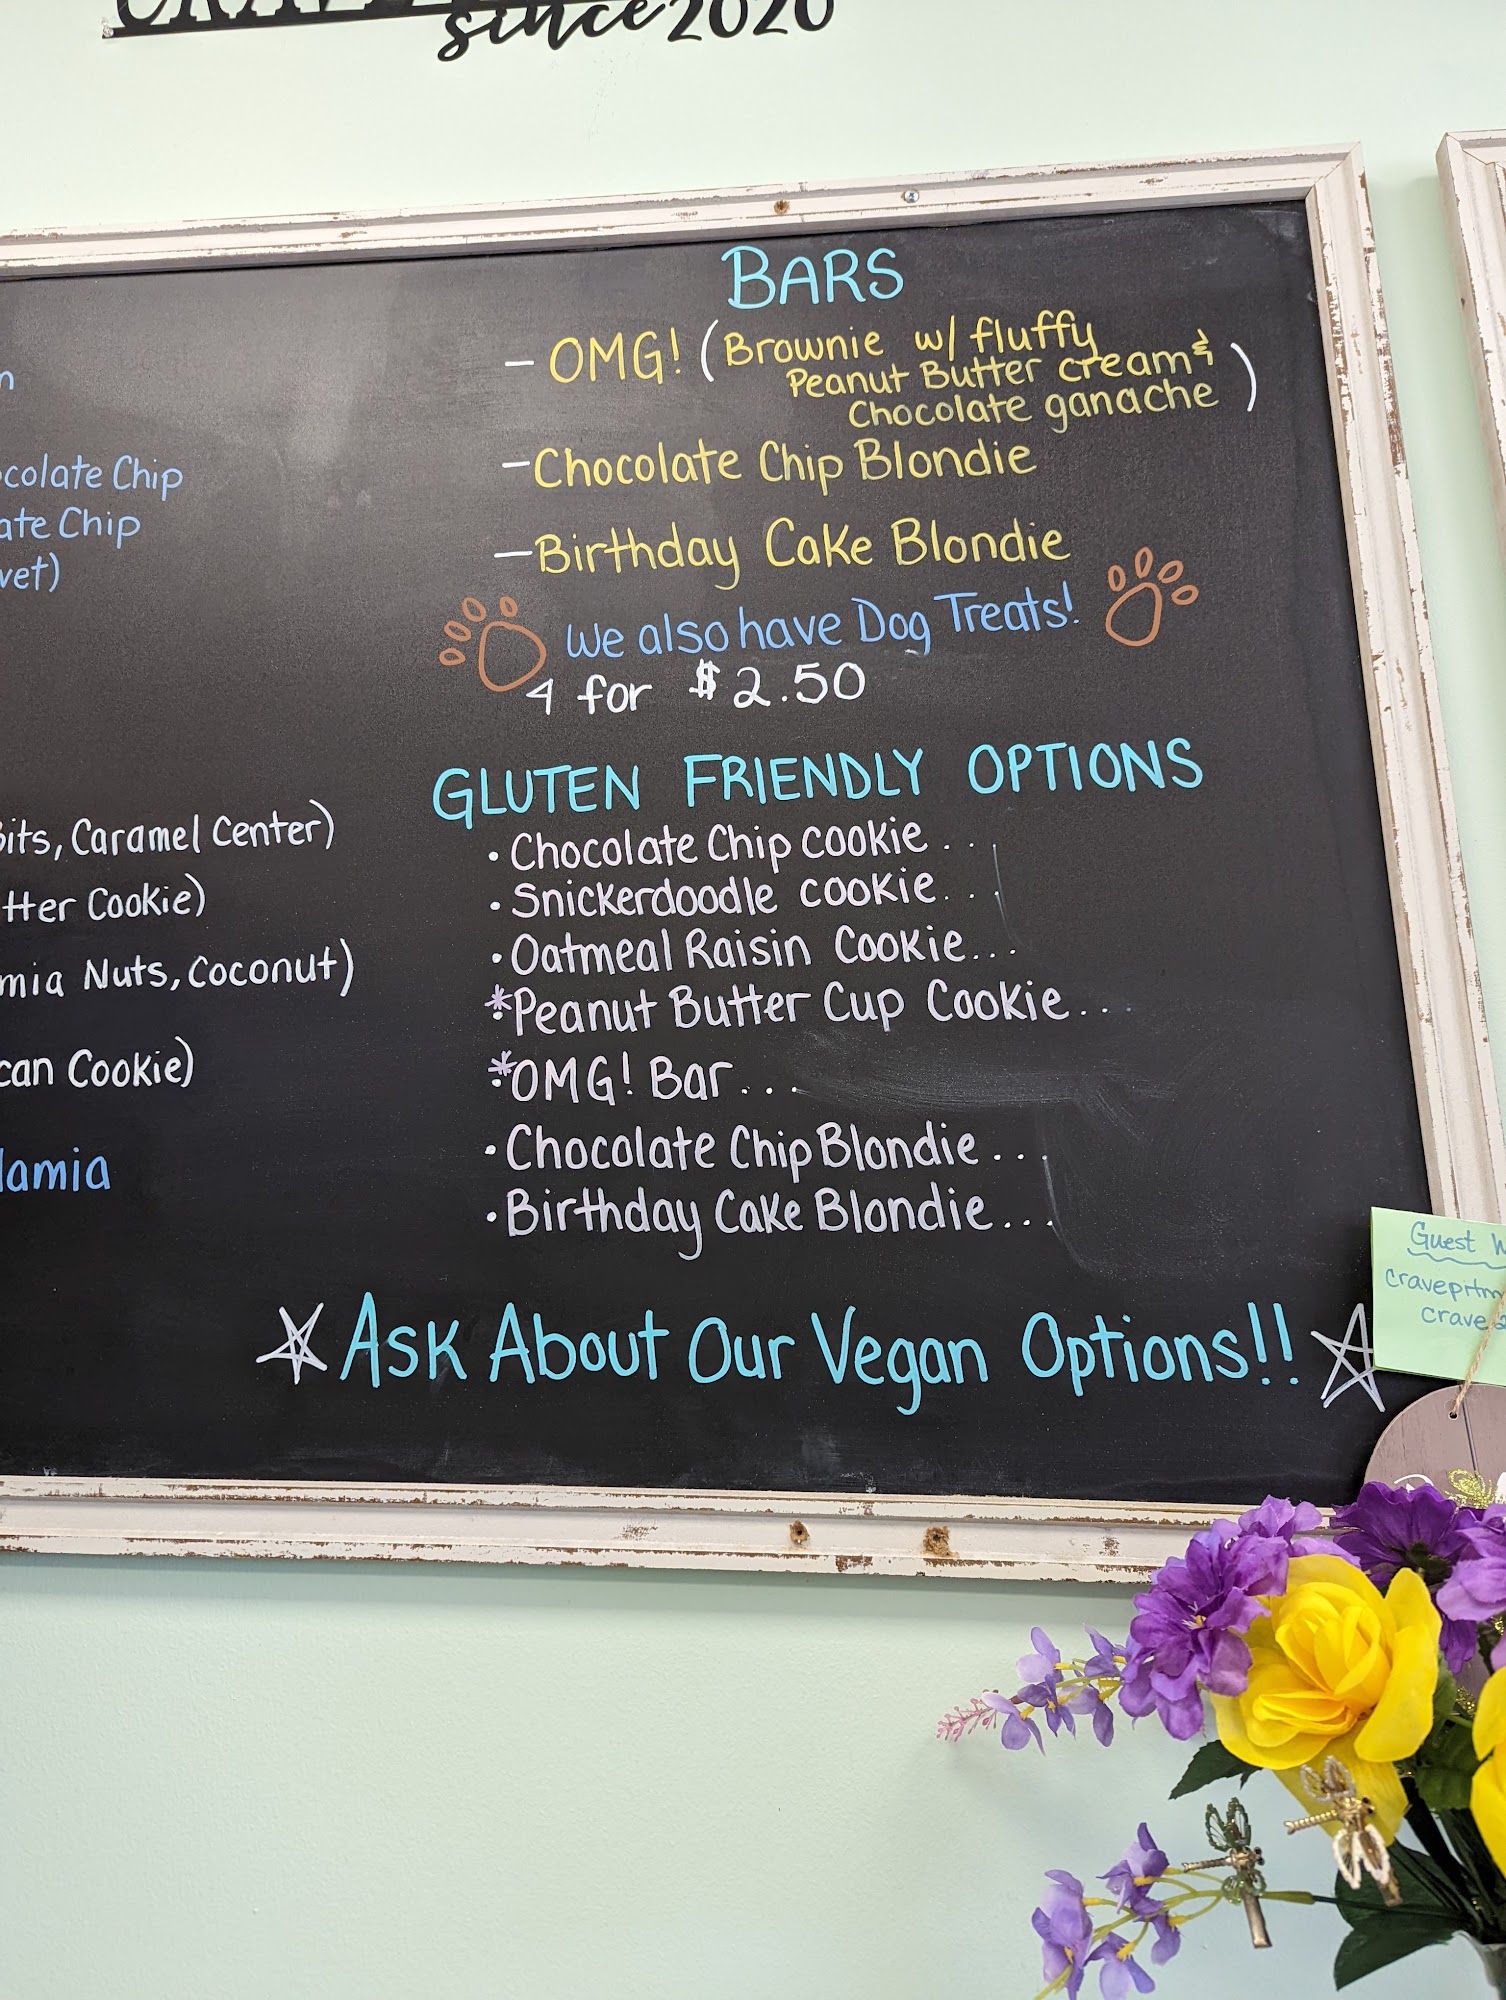 since 2020
colate Chip
ate Chip
vet)
Bits, Caramel Center)
tter Cookie)
mia Nuts, Coconut)
can Cookie)
damia
BARS
- OMG! (Brownie w/ fluffy
Peanut Butter cream &
Chocolate ganache)
- Chocolate Chip Blondie
- Birthday Cake Blondie
We also have Dog Treats!
4 for $2.50
GLUTEN FRIENDLY OPTIONS
· Chocolate Chip cookie...
· Snickerdoodle cookie...
· Oatmeal Raisin Cookie...
* Peanut Butter Cup Cookie...
* OMG! Bar...
· Chocolate Chip Blondie...
· Birthday Cake Blondie...
Ask About Our Vegan Options!!
Guest W
cravepitm
crave